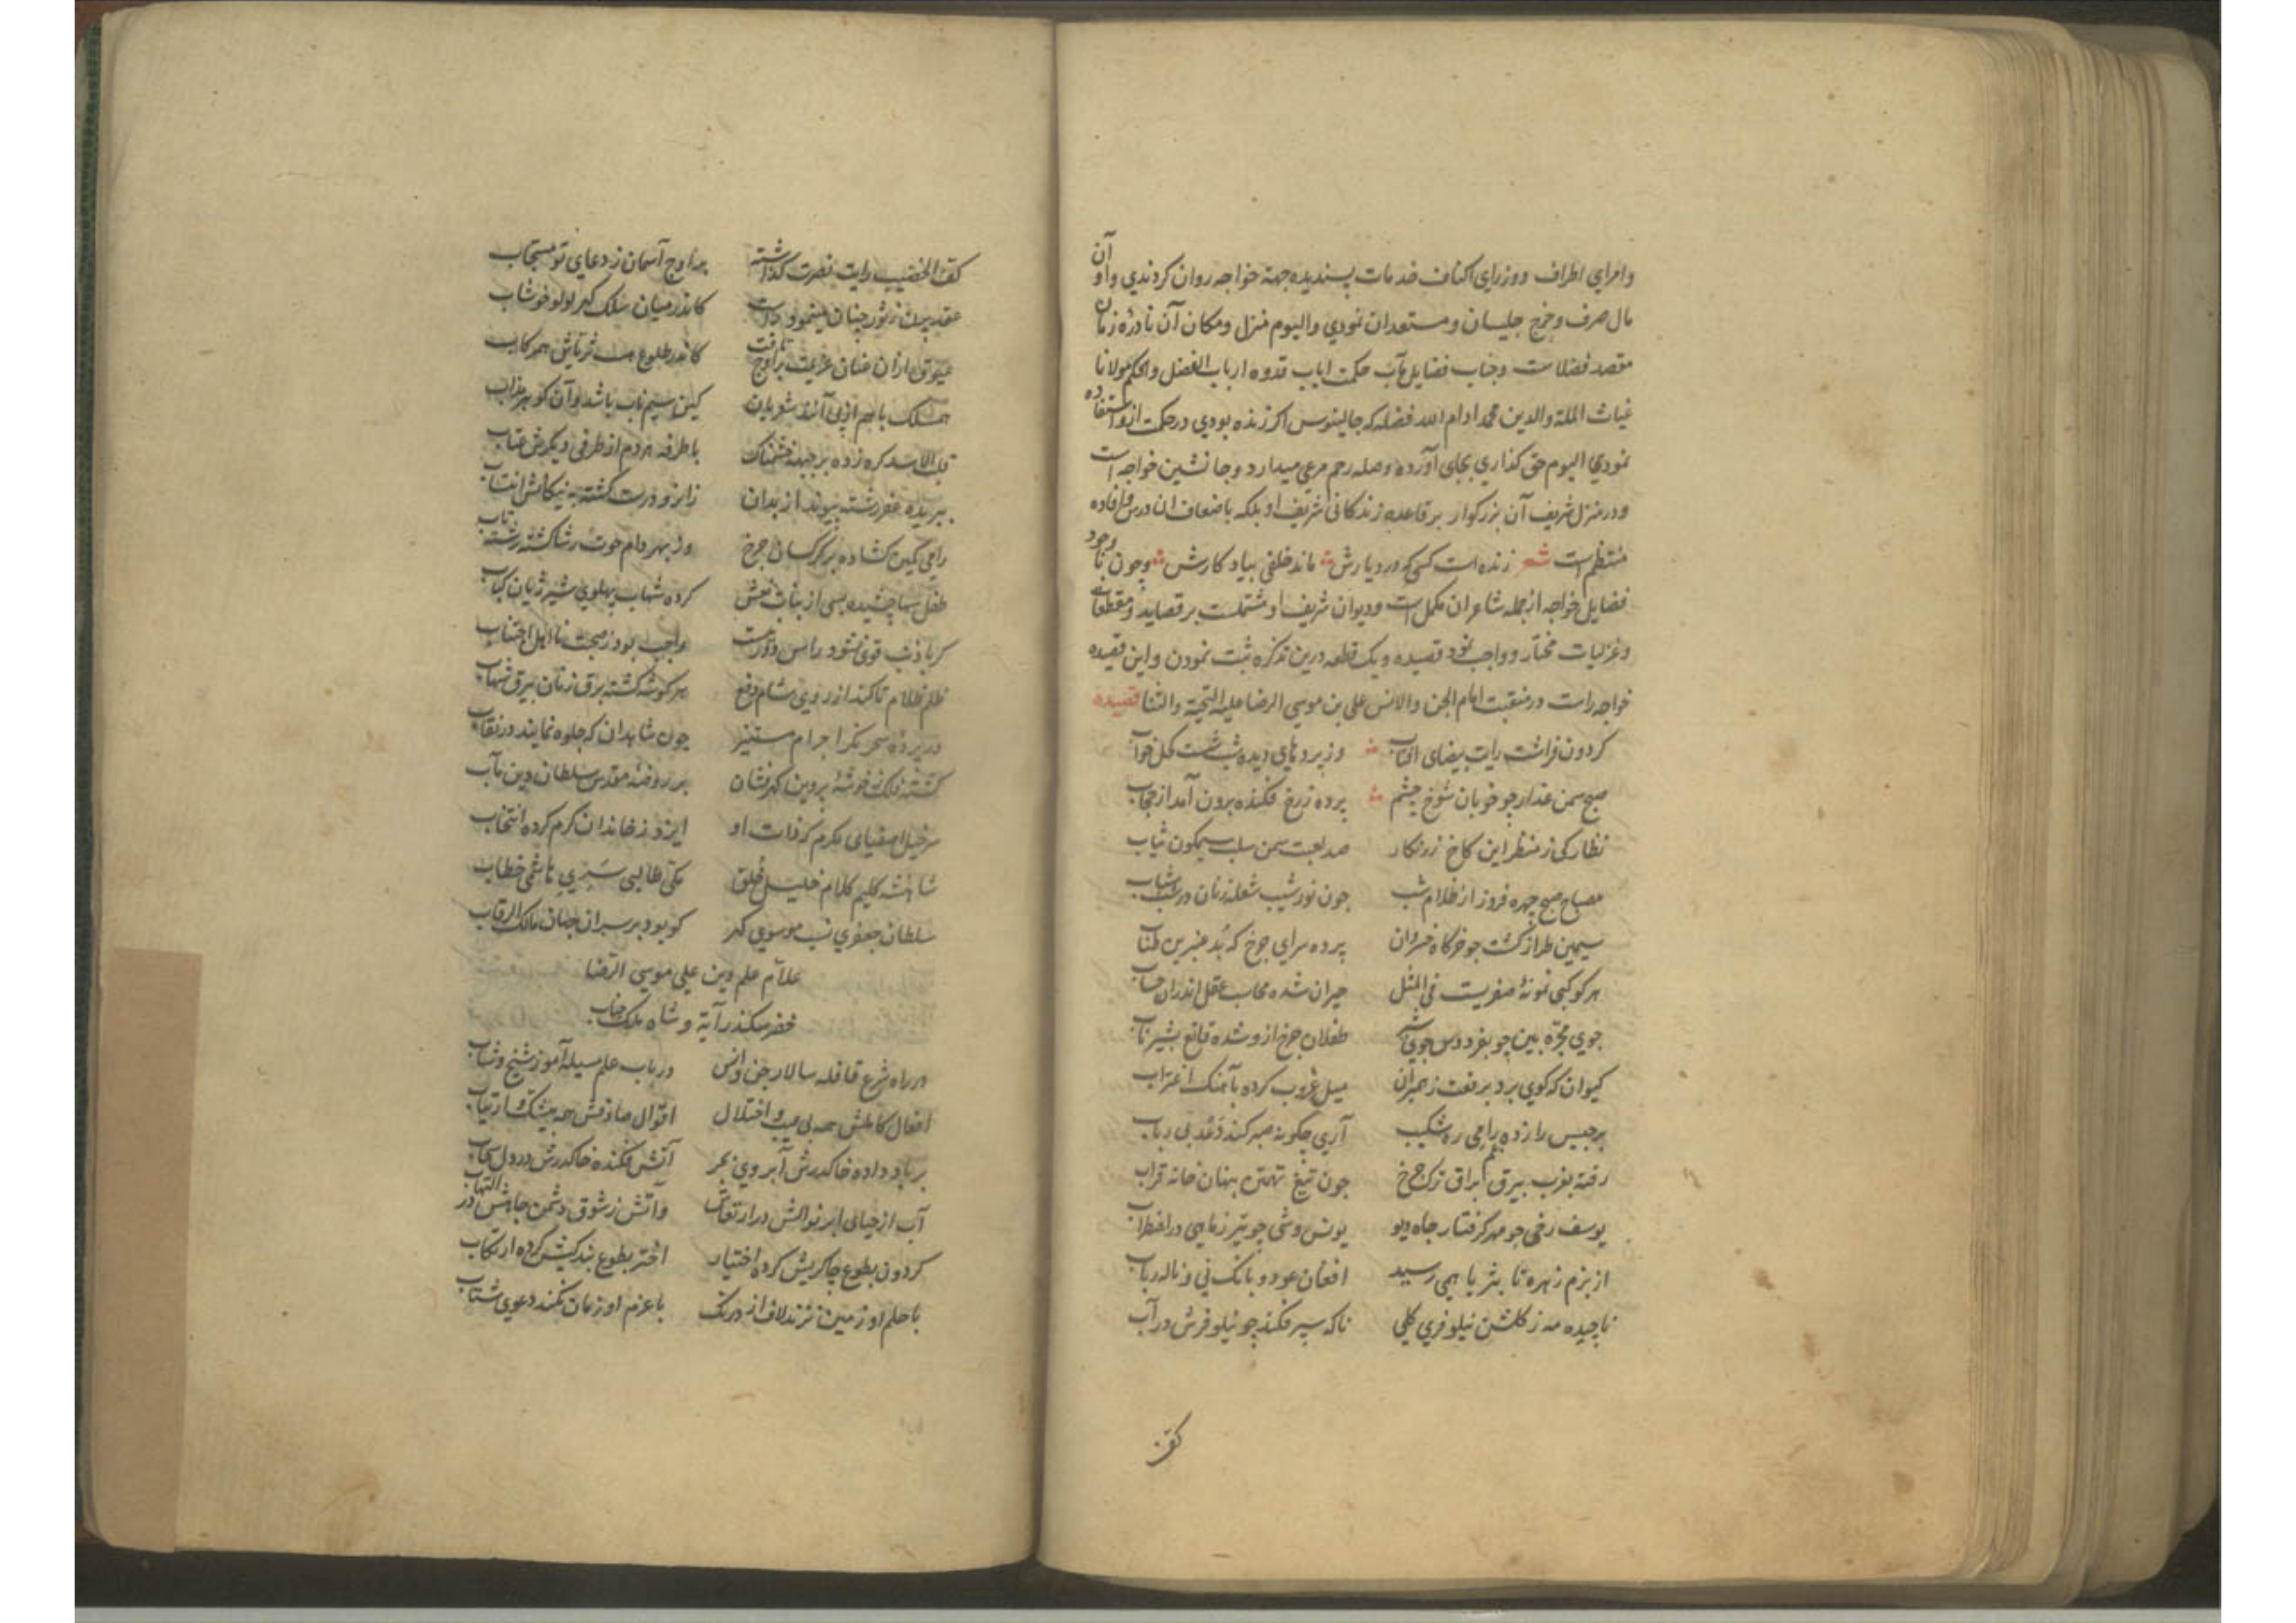 وامرای اطراف ووزرای اکناف خدمات پسندیده جهة خواجه روان کردندی واو آن
مال صرف وخرج جلیسان ومستعدان نمودی والیوم منزل ومکان آن نادرۀ زمان
مقصد فضلاست وجناب فضایل مآب حکمت ایاب قدوه ارباب الفضل والحکم مولانا
غیاث الملة والدین محمد ادام الله فضله که جالینوس اکر زنده بودی درحکمت ازو استفاده
نمودی الیوم حق کذاری بجای آورده وصله رحم مرعی میدارد وجانشین خواجه است
ودرمنزل شریف آن بزرکوار برقاعده زندکانی شریف او بلکه باضعاف ان درس وافاده
منتظم است شعر زنده است کسی که دردیارش ماند خلفی بیادکارش وچون با وجود
فضایل خواجه ازجمله شاعران مکمل است ودیوان شریف او مشتملست برقصاید ومقطعات
وغزلیات مختار وواجب نمود قصیده ویک قطعه درین تذکره ثبت نمودن واین قصیده
خواجه راست درمنقبت امام الجن والانس علی بن موسی الرضا علیه التحیة والثنا قصیده
کردون فراشت رایت بیضای افتاب وز پردهای دیده شب شست کحل خواب
صبح سمن عذار چو خوبان شوخ چشم پرده زرخ فکنده برون آمد از حجاب
نظارکی ز منظر این کاخ زرنکار صد لعبت سمن سلب سیمکون ثیاب
مصباح صبح چهره فروز از ظلام شب چون نور شیب شعله زنان در شباب
سیمین طراز کشت چو خرکاه خسروان پرده سرای چرخ که بد عنبرین طناب
هر کوکبی نمونۀ صفریست فی المثل حیران شده محاسب عقل اندران حساب
جوی مجره بین چو بفردوس جوی شیر طفلان چرخ ازو شده قانع بشیر ناب
کیوان که کوی برد برفعت ز همبران میل غروب کرده بآهنک اغتراب
برجیس را زده رامی ره شکیب آری چکونه صبر کند دعد بی رباب
رفته بغرب بیرق براق ترک چرخ چون تیغ تهمتن بنهان خانه قراب
یوسف رخی چو مهر کرفتار چاه دیو یونس وشی چو تیر ز ماهی در اضطراب
از بزم زهره تا بثریا همی رسید افغان عود و بانک نی و ناله رباب
ناچیده مه ز کلشن نیلوفری کلی ناکه سپر فکند چو نیلوفرش در آب
کف
کف الخضیب رایت نصرت کذاشته بر اوج آسمان ز دعای تو مستجاب
عقد پرن ز ثور چنان مینمود راست کاندر میان سلک کهر لولو خوشاب
عیوق ازان عنان عزیمت بر اوج تافت کاندر طلوع هست ثریاش همرکاب
قلب الاسد کره زده بر جبهه خشمناک با طرفه هر دم از طرفی دیکرش عتاب
ببریده غفر رشته پیوند از بدان زانرو درست کشته به نیکانش انتساب
رامی کمین کشاده بر کرکسان چرخ وز بهر دام حوت رشا کشته رشته تاب
طفل سها چشیده بسی از بنات نعش کرده شهاب پهلوی شیر ژیان کباب
واجب بود ز صحبت نااهل اجتناب
ظلم ظلام تا کند از روی شام دفع هر کوشه کشته برق زنان بیرق شهاب
در پردۀ سحر نکر اجرام مستنیر چون شاهدان که جلوه نمایند در نقاب
کشته فلک ز خوشۀ پروین کهرفشان بر روضه مقدس سلطان دین مآب
سرخیل اصفیای مکرم که ذات او ایزد ز خاندان کرم کرده انتخاب
شاهنشه کلیم کلام خلیل خلق مکی طالبی نسب هاشمی خطاب
سلطان جعفری نسب موسوی کهر کو بود بر سران جهان مالک الرقاب
علام علم دین علی موسی الرضا
خضر سکندر آیة و شاه ملک جناب
در راه شرع قافله سالار جن وانس در باب علم مسیله آموز شیخ وشاب
افعال کاملش همه بی عیب واختلال اقوال صادقش همه بیشک وارتیاب
بر باد داده خاک درش آبروی بحر آتش فکنده خاک درش در دل سحاب
آب از حیای ابر نوالش در ارتعاش وآتش ز شوق دشمن جاهش در التهاب
کردون بطوع چاکریش کرده اختیار اختر بطوع بندکیش کرده ارتکاب
با حلم او زمین نزند لاف از درنک با عزم او زمان نکند دعوی شتاب